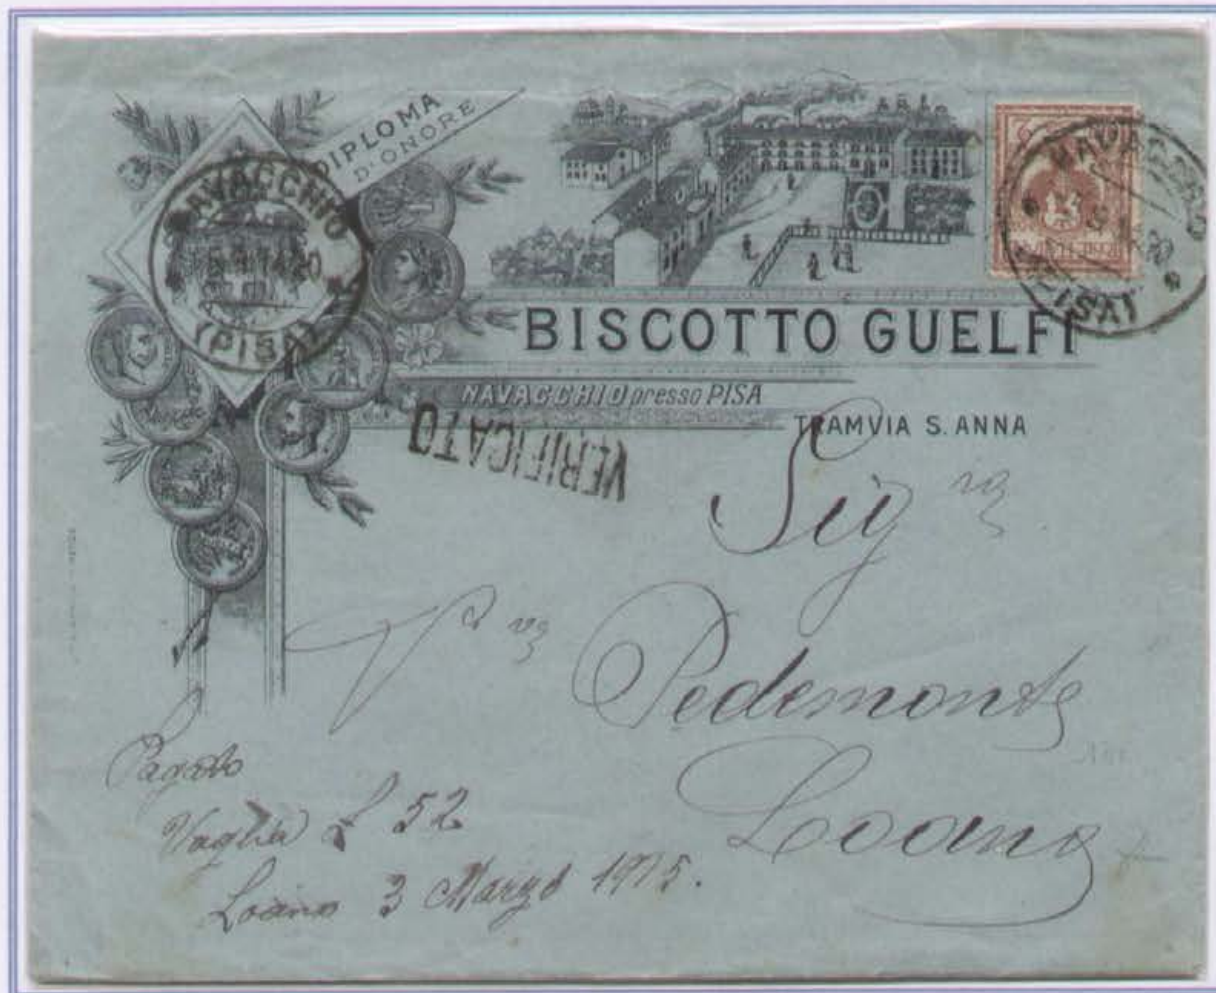 DIPLOMA
D'ONORE
NAVACCHIO
(PISA)
NAVACCHIO
(PISA)
BISCOTTO GUELFI
NAVACCHIO presso PISA
TRAMVIA S. ANNA
VERIFICATO
Sig
Pedemonte
Loano
Pagato
Vaglia L 52
Loano 3 Marzo 1915.